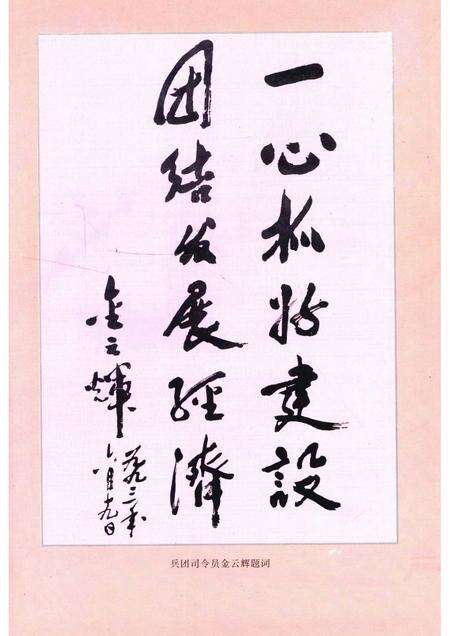 一心抓好建設
团結发展經濟
金云輝
一九九三年
六月十九日
兵团司令员金云辉题词